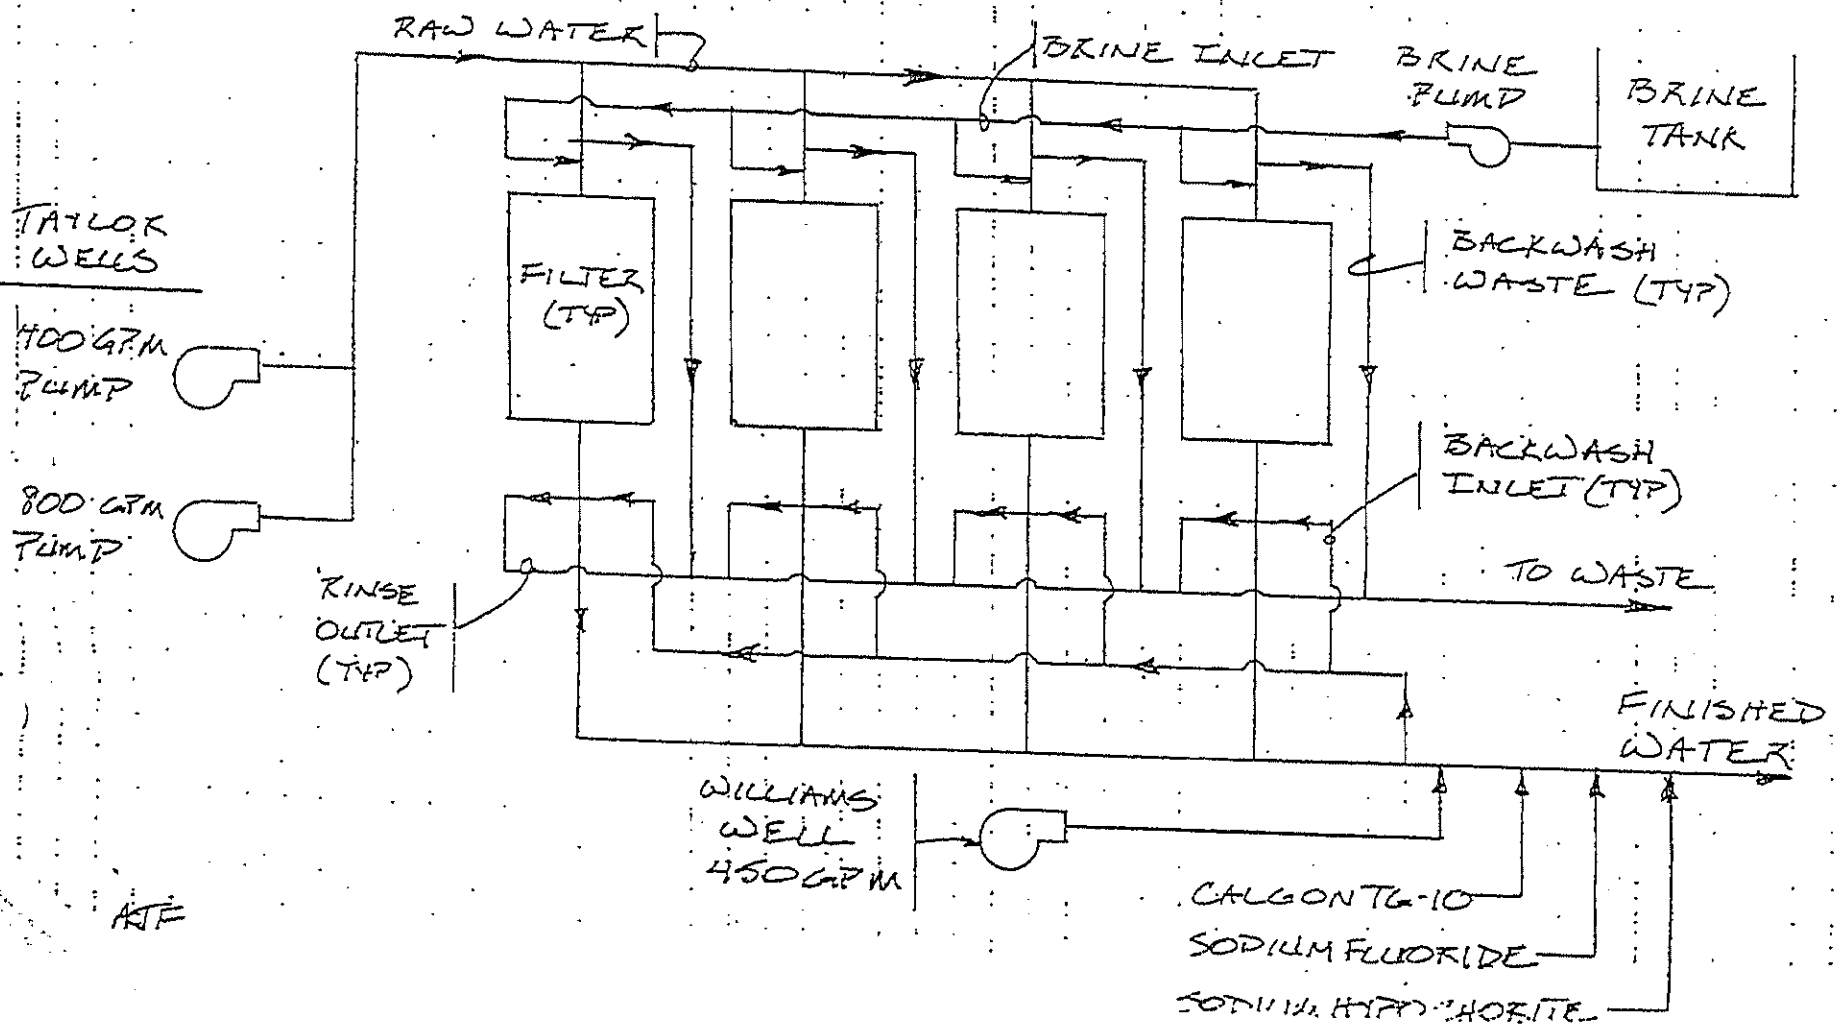 RAW WATER
BRINE INLET
BRINE
PUMP
BRINE
TANK
TAYLOR
WELLS
400 GPM
PUMP
800 GPM
PUMP
FILTER
(TYP)
BACKWASH
WASTE (TYP)
BACKWASH
INLET (TYP)
TO WASTE
RINSE
OUTLET
(TYP)
FINISHED
WATER
WILLIAMS
WELL
450 GPM
CALGON TG-10
SODIUM FLUORIDE
SODIUM